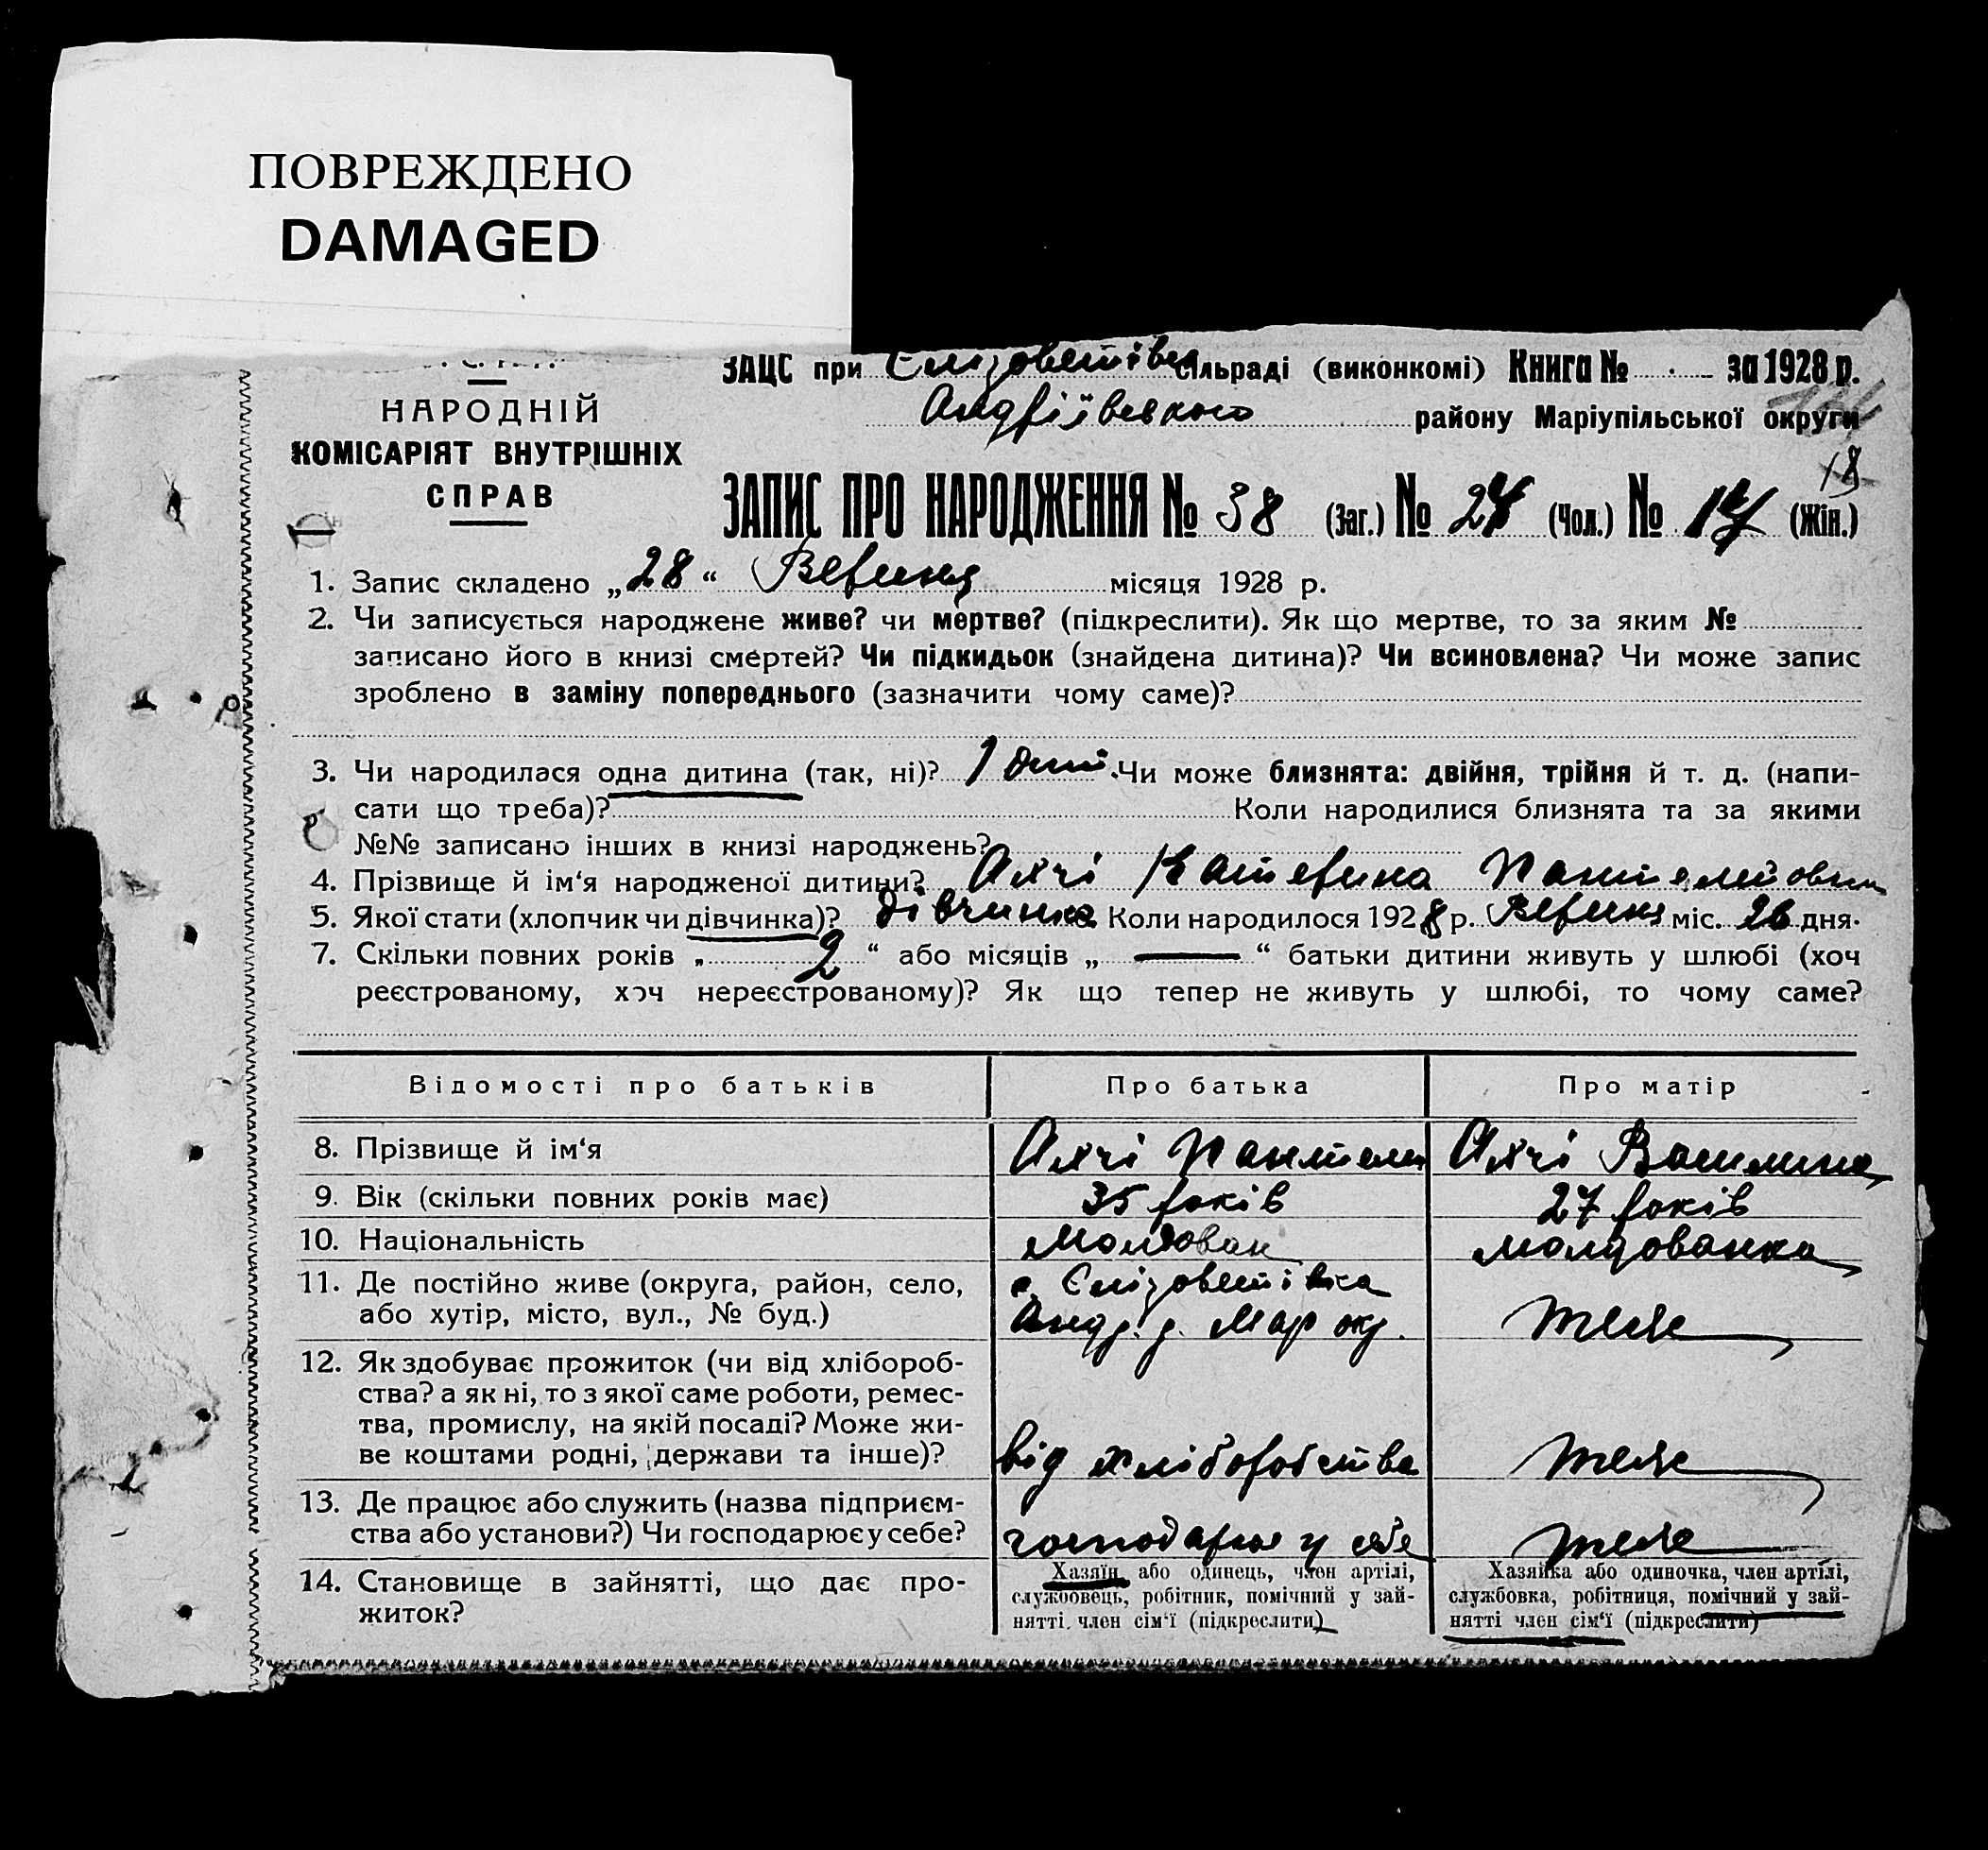 ПОВРЕЖДЕНО
DAMAGED
ЗАЦС при Єлізоветівс сільраді (виконкомі) Книга № за 1928 р.
Андріївського району Маріупільської округи
НАРОДНІЙ
КОМІСАРІЯТ ВНУТРІШНІХ
СПРАВ
18
ЗАПИС ПРО НАРОДЖЕННЯ № 38 (Заг.) № 24 (Чол.) № 17 (Жін.)
1. Запис складено „28“ Вериня місяця 1928 р.
2. Чи записується народжене живе? чи мертве? (підкреслити). Як що мертве, то за яким №
записано його в книзі смертей? Чи підкидьок (знайдена дитина)? Чи всиновлена? Чи може запис
зроблено в заміну попереднього (зазначити чому саме)?
3. Чи народилася одна дитина (так, ні)? 1 дит. Чи може близнята: двійня, трійня й т. д. (напи-
сати що треба)? Коли народилися близнята та за якими
№№ записано інших в книзі народжень?
4. Прізвище й ім‘я народженої дитини? Ахчі Катерина
5. Якої стати (хлопчик чи дівчинка)? дівчинка Коли народилося 1928 р. Вериня міс. 26 дня.
7. Скільки повних років „ 2 “ або місяців „ — “ батьки дитини живуть у шлюбі (хоч
реєстрованому, хоч нереєстрованому)? Як що тепер не живуть у шлюбі, то чому саме?
Відомості про батьків Про батька Про матір
8. Прізвище й ім‘я Ахчі Пантелей Ахчі Василина
9. Вік (скільки повних років має) 35 років 27 років
10. Національність Молдован молдованка
11. Де постійно живе (округа, район, село, с. Єлізоветівка
або хутір, місто, вул., № буд.) Андр. р. Мар окр. теж
12. Як здобуває прожиток (чи від хлібороб-
ства? а як ні, то з якої саме роботи, ремес-
тва, промислу, на якій посаді? Може жи-
ве коштами родні, держави та інше)? від хліборобства теж
13. Де працює або служить (назва підприєм-
ства або установи?) Чи господарює у себе? господарює у себе теж
14. Становище в зайнятті, що дає про-
житок?
Хазяїн або одинець, член артілі,
службовець, робітник, помічний у зай-
нятті член сім‘ї (підкреслити)
Хазяйка або одиночка, член артілі,
службовка, робітниця, помічний у зай-
нятті член сім‘ї (підкреслити)